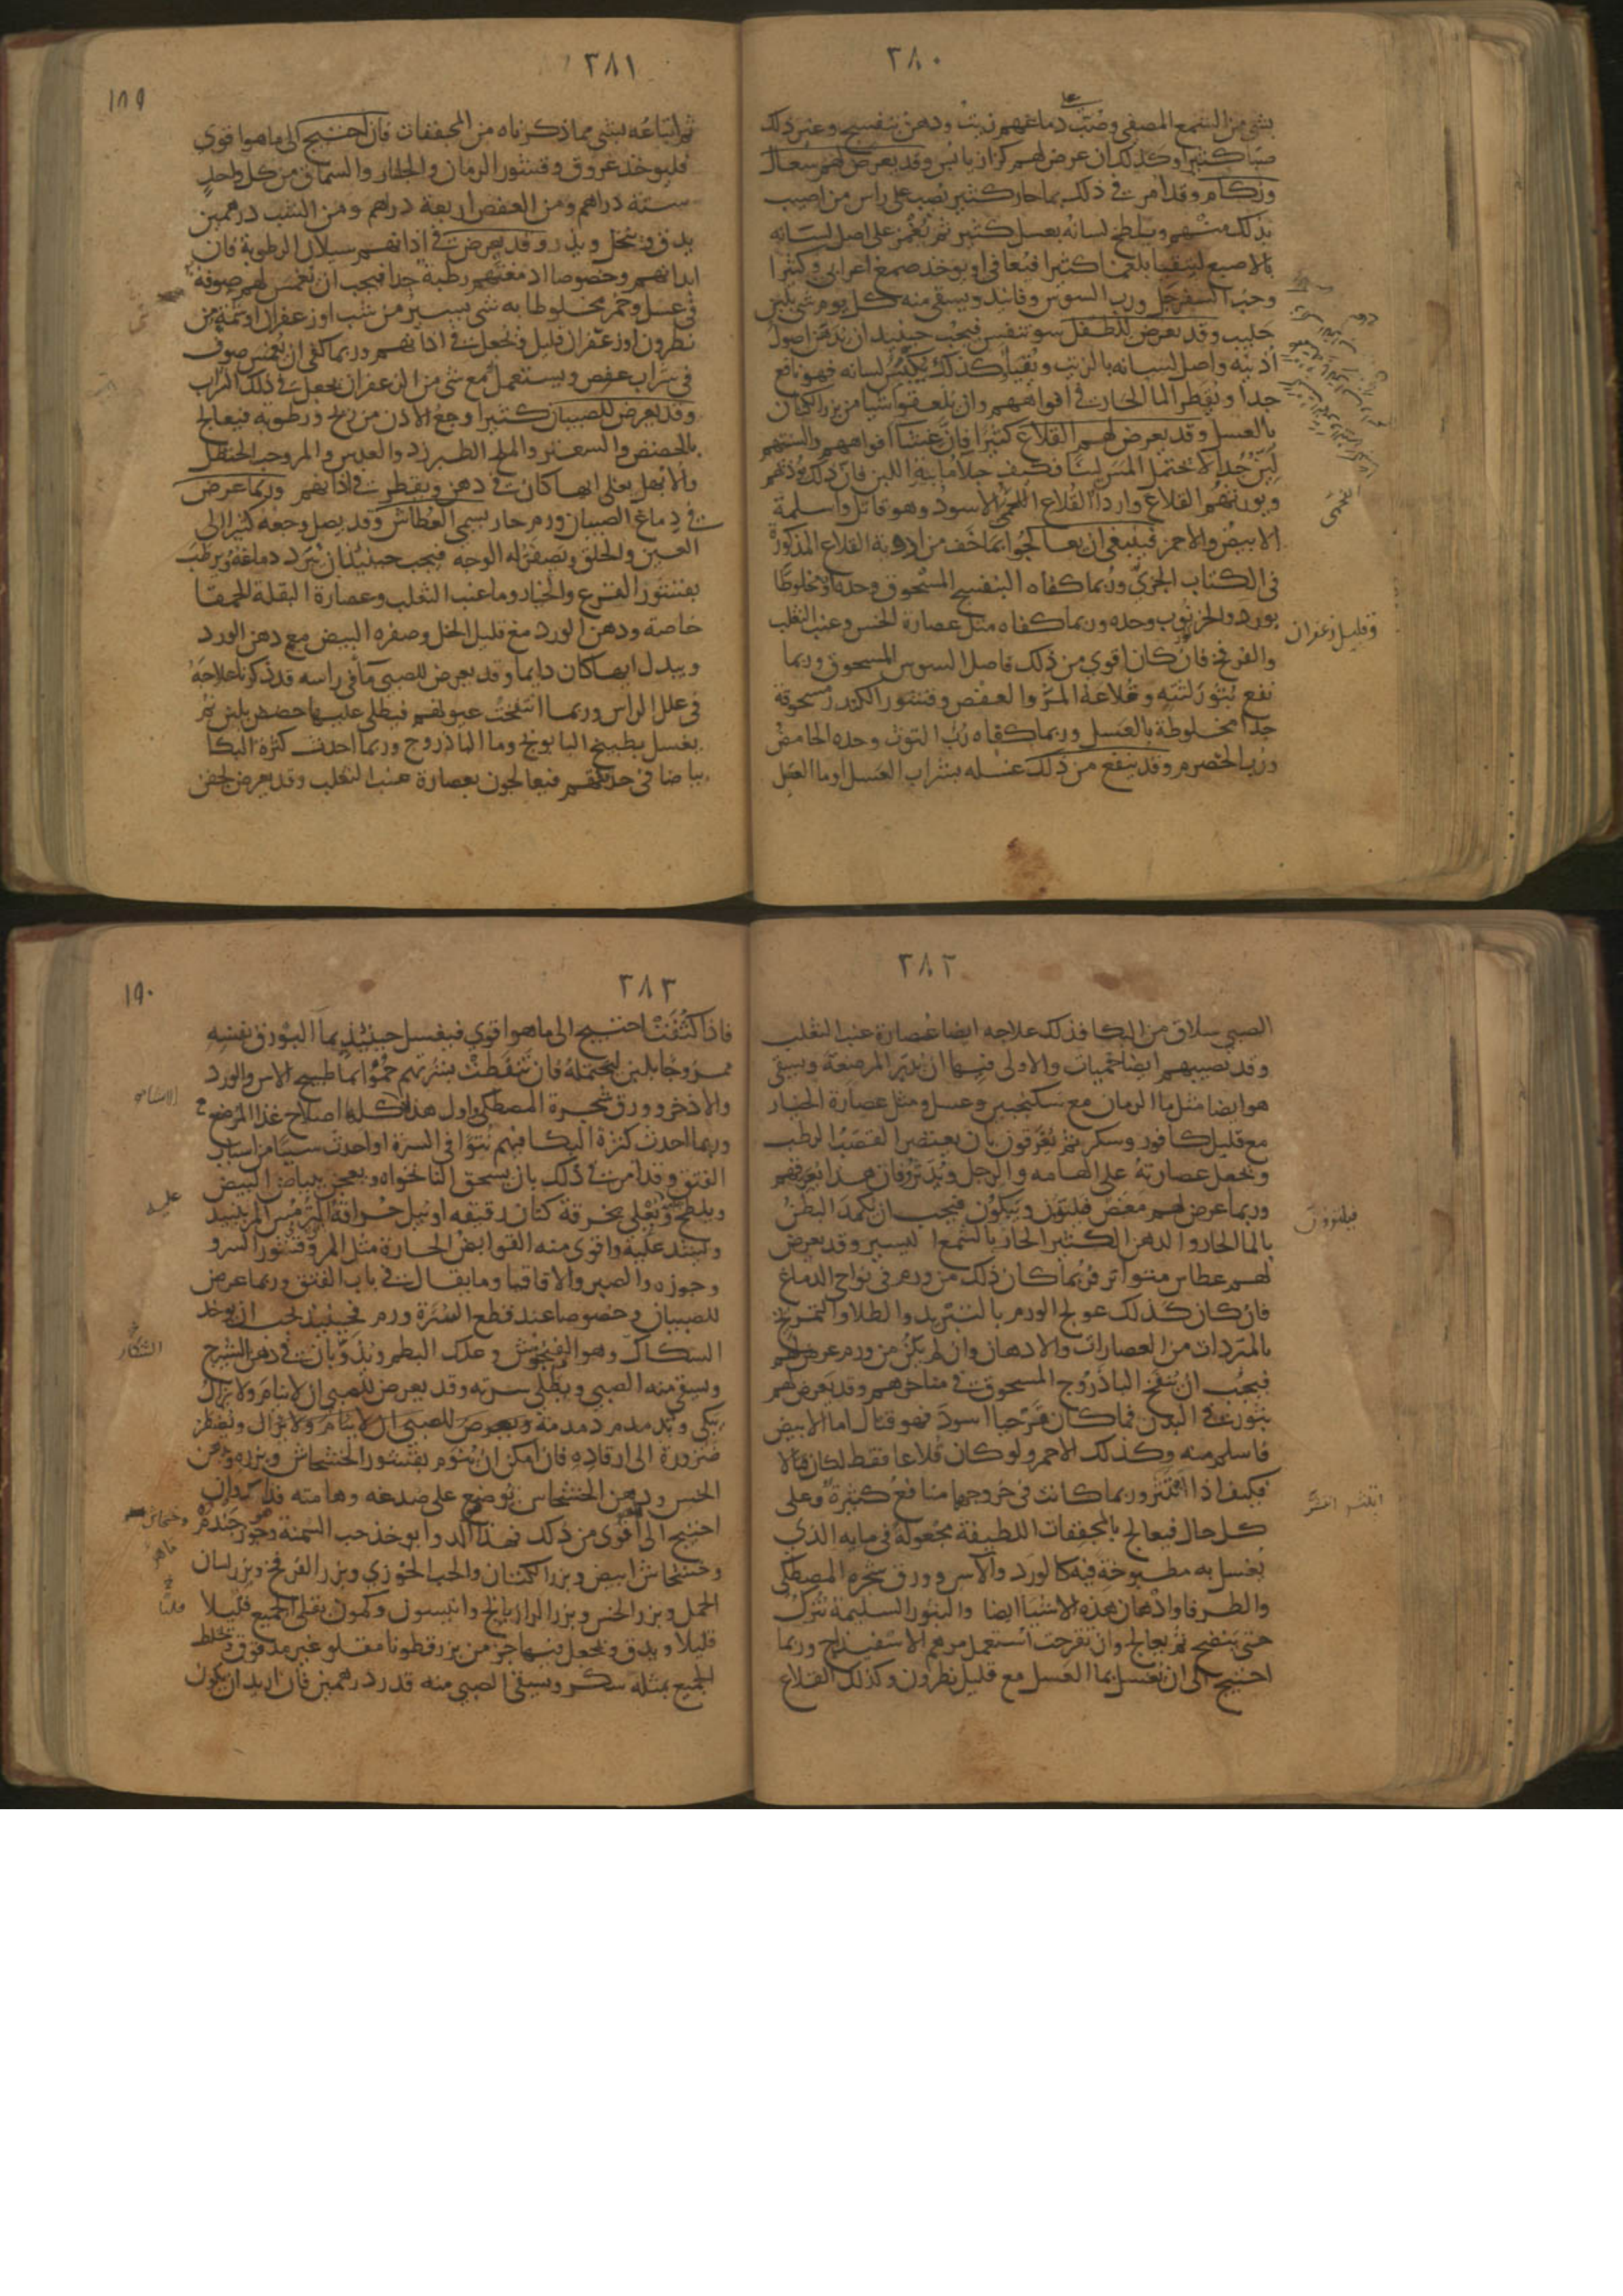 ٢٨٠
بشي من الشمع المصفي وصب على دماغهم زيت ودهن بنفسج وغير ذلك
صبا كثيرا وكذلك ان عرض لهم كزاز يابس وقد يعرض لهم سعال
وزكام وقد امر في ذلك بماء حار كثير يصب على راس من اصيب
بذلك منهم ويلطخ لسانه بعسل كثير ثم يغمز على اصل لسانه
بالاصبع ليتقيا بلغما كثيرا فيعافى او يوخذ صمغ اعرابي وكثيرا
وحب السفرجل ورب السوس وفانيد ويسقى منه كل يوم شي بلبن
حليب وقد يعرض للطفل سو تنفس فيجب حينيذ ان يدهن اصول
اذنيه واصل لسانه بالزيت ويقيا وكذلك يكبس لسانه فهو نافع
جدا ويقطر الما الحار في افواههم وان يلعقوا شيا من بزر الكتان
بالعسل وقد يعرض لهم القلاع كثيرا فان غشا افواههم والسنتهم
لين جدا لا يحتمل المس لينا فكيف جلا مايية اللبن فان ذلك يوذيهم
ويورثهم القلاع واردا القلاع الفحمي الاسود وهو قاتل واسلمه
الابيض والاحمر فينبغي ان يعالجوا بما خف من ادوية القلاع المذكورة
في الكتاب الجزي وربما كفاه البنفسج المسحوق وحده او مخلوطا
بورد والخرنوب وحده وربما كفاه مثل عصارة الخس وعنب الثعلب
وقليل زعفران
والفرفخ فان كان اقوى من ذلك فاصل السوس المسحوق وربما
نفع بثور لثته وقلاعه المر والعفص وقشور الكندر مسحوقة
جدا مخلوطة بالعسل وربما كفاه رب التوت وحده الحامض
ورب الحصرم وقد ينفع من ذلك غسله بشراب العسل او ما العسل
٢٨١
١٨٩
ثم اتباعه بشي مما ذكرناه من المجففات فان احتيج الى ما هو اقوى
فليوخذ عروق وقشور الرمان والجلنار والسماق من كل واحد
ستة دراهم ومن العفص اربعة دراهم ومن الشب درهمين
يدق وينخل ويذر وقد يعرض في اذانهم سيلان الرطوبة فان
ابدانهم وخصوصا ادمغتهم رطبة جدا فيجب ان تغمس لهم صوفة
في عسل وخمر مخلوطا به شي يسير من شب او زعفران او شمة من
نطرون او زعفران قليل وتجعل في اذانهم وربما كفى ان يغمس صوف
في شراب عفص ويستعمل مع شي من الزعفران يجعل في ذلك الشراب
وقد يعرض للصبيان كثيرا وجع الاذن من ريح ورطوبة فيعالج
بالحضض والسعتر والملح الطبرزد والعدس والمر وحب الحنظل
والابهل يغلى ايها كان في دهن ويقطر في اذانهم وربما عرض
في دماغ الصبيان ورم حار يسمى العطاش وقد يصل وجعه كثيرا الى
العين والحلق ويصفر له الوجه فيجب حينيذ ان يبرد دماغه ويرطب
بقشور القرع والخيار وما عنب الثعلب وعصارة البقلة الحمقا
خاصة ودهن الورد مع قليل الخل وصفره البيض مع دهن الورد
ويبدل ايها كان دايما وقد يعرض للصبي ما في راسه قد ذكرنا علاجه
في علل الراس وربما انتفخت عيونهم فيطلى عليها حضض بلبن ثم
يغسل بطبيخ البابونج وما الباذروج وربما احدث كثرة البكا
بياضا في حدقتهم فيعالجون بعصارة عنب الثعلب وقد يعرض لجفن
٢٨٢
الصبي سلاق من البكا فذلك علاجه ايضا عصارة عنب الثعلب
وقد تصيبهم ايضا حميات والاولى فيها ان تدبر المرضعة ويسقى
هو ايضا مثل ما الرمان مع سكنجبين وعسل ومثل عصارة الخيار
مع قليل كافور وسكر ثم يعرقون بان يعتصر القصب الرطب
وتجعل عصارته على الهامه والرجل ويدثر وفان هذا يعرقهم
وربما عرض لهم مغص فيلتوون ويبكون فيجب ان يكمد البطن
فيلتوون
بالما الحار والدهن الكثير الحار بالشمع اليسير وقد يعرض
لهم عطاس متواتر فربما كان ذلك من ورم في نواحي الدماغ
فان كان كذلك عولج الورم بالتبريد والطلا والتمريخ
بالمبردات من العصارات والادهان وان لم يكن من ورم عرض لهم
فيجب ان ينفخ الباذروج المسحوق في مناخرهم وقد يعرض لهم
بثور في البدن فما كان قرحيا اسود فهو قتال اما الابيض
فاسلم منه وكذلك الاحمر ولو كان قلاعا فقط لكان قتالا
فكيف اذا انتثر وربما كانت في خروجها منافع كثيرة وعلى
كل حال فيعالج بالمجففات اللطيفة مجعولة في مايه الذي
يغسل به مطبوخة فيه كالورد والاس وورق شجره المصطكى
والطرفا وادهان هذه الاشيا ايضا والبثور السليمة تترك
حتى تنضج ثم يعالج وان تقرحت استعمل مرهم الاسفيداج وربما
احتيج الى ان يغسل بما العسل مع قليل نطرون وكذلك القلاع
٢٨٣
١٩٠
فاذا كثفت احتيج الى ما هو اقوى فيغسل حينيذ بما البورق نفسه
ممزوجا بلبن ليحتمله فان تنفطت بشرتهم حموا بما طبيخ الاس والورد
والاذخر وورق شجرة المصطكى واول هذا كله اصلاح غذا المرضع
وربما احدث كثرة البكا فيهم نتوا في السرة او احدث سببا من اسباب
الفتق وقد امر في ذلك بان يسحق النانخواه ويعجن ببياض البيض
ويلطخ ويعلى بخرقة كتان دقيقه او تبل حراقة الترمس المر بنبيذ
وتشد عليه واقوى منه القوابض الحارة مثل المر وقشور السرو
وجوزه والصبر والاقاقيا وما يقال في باب الفتق وربما عرض
للصبيان وخصوصا عند قطع السرة ورم فحينيذ يجب ان يوخذ
الشنكار
السكاك وهو الفنجوش وعلك البطم ويذوبان في دهن الشيرج
ويسقى منه الصبي ويطلى سرته وقد يعرض للصبي ان لا ينام ولا يزال
يبكي ويدمدم دمدمة ويعرض للصبي ان لا ينام ولا يزال ويضطر
ضرورة الى ارقاده فان امكن ان ينوم بقشور الخشخاش وبزره ودهن
الخس ودهن الخشخاش يوضع على صدغه وهامته فذاك وان
احتيج الى اقوى من ذلك فهذا الدوا يوخذ حب السمنة وجوز جندم
وخشخاش ابيض وبزر الكتان والحب الخوزي وبزر الفرفخ وبزر لسان
الحمل وبزر الخس وبزر الرازيانج وانيسون وكمون يقلى الجميع قليلا
قليلا ويدق ويجعل فيها جز من بزر قطونا مقلو غير مدقوق ويخلط
الجميع بمثله سكر ويسقى الصبي منه قدر درهمين فان اريد ان يكون